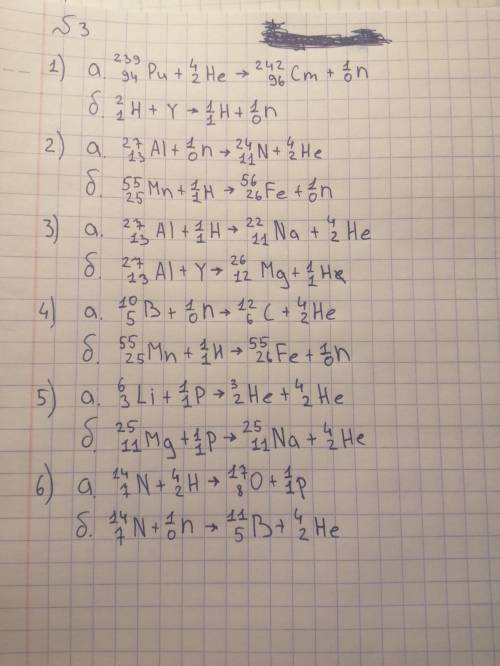 №3
1) а. ²³⁹₉₄Pu + ⁴₂He → ²⁴²₉₆Cm + ¹₀n
б. ²₁H + γ → ¹₁H + ¹₀n
2) а. ²⁷₁₃Al + ¹₀n → ²⁴₁₁N + ⁴₂He
б. ⁵⁵₂₅Mn + ¹₁H → ⁵⁶₂₆Fe + ¹₀n
3) а. ²⁷₁₃Al + ¹₁H → ²²₁₁Na + ⁴₂He
б. ²⁷₁₃Al + γ → ²⁶₁₂Mg + ¹₁H
4) а. ¹⁰₅B + ¹₀n → ¹²₆C + ⁴₂He
б. ⁵⁵₂₅Mn + ¹₁H → ⁵⁵₂₆Fe + ¹₀n
5) а. ⁶₃Li + ¹₁P → ³₂He + ⁴₂He
б. ²⁵₁₁Mg + ¹₁p → ²⁵₁₁Na + ⁴₂He
6) а. ¹⁴₇N + ⁴₂H → ¹⁷₈O + ¹₁p
б. ¹⁴₇N + ¹₀n → ¹¹₅B + ⁴₂He